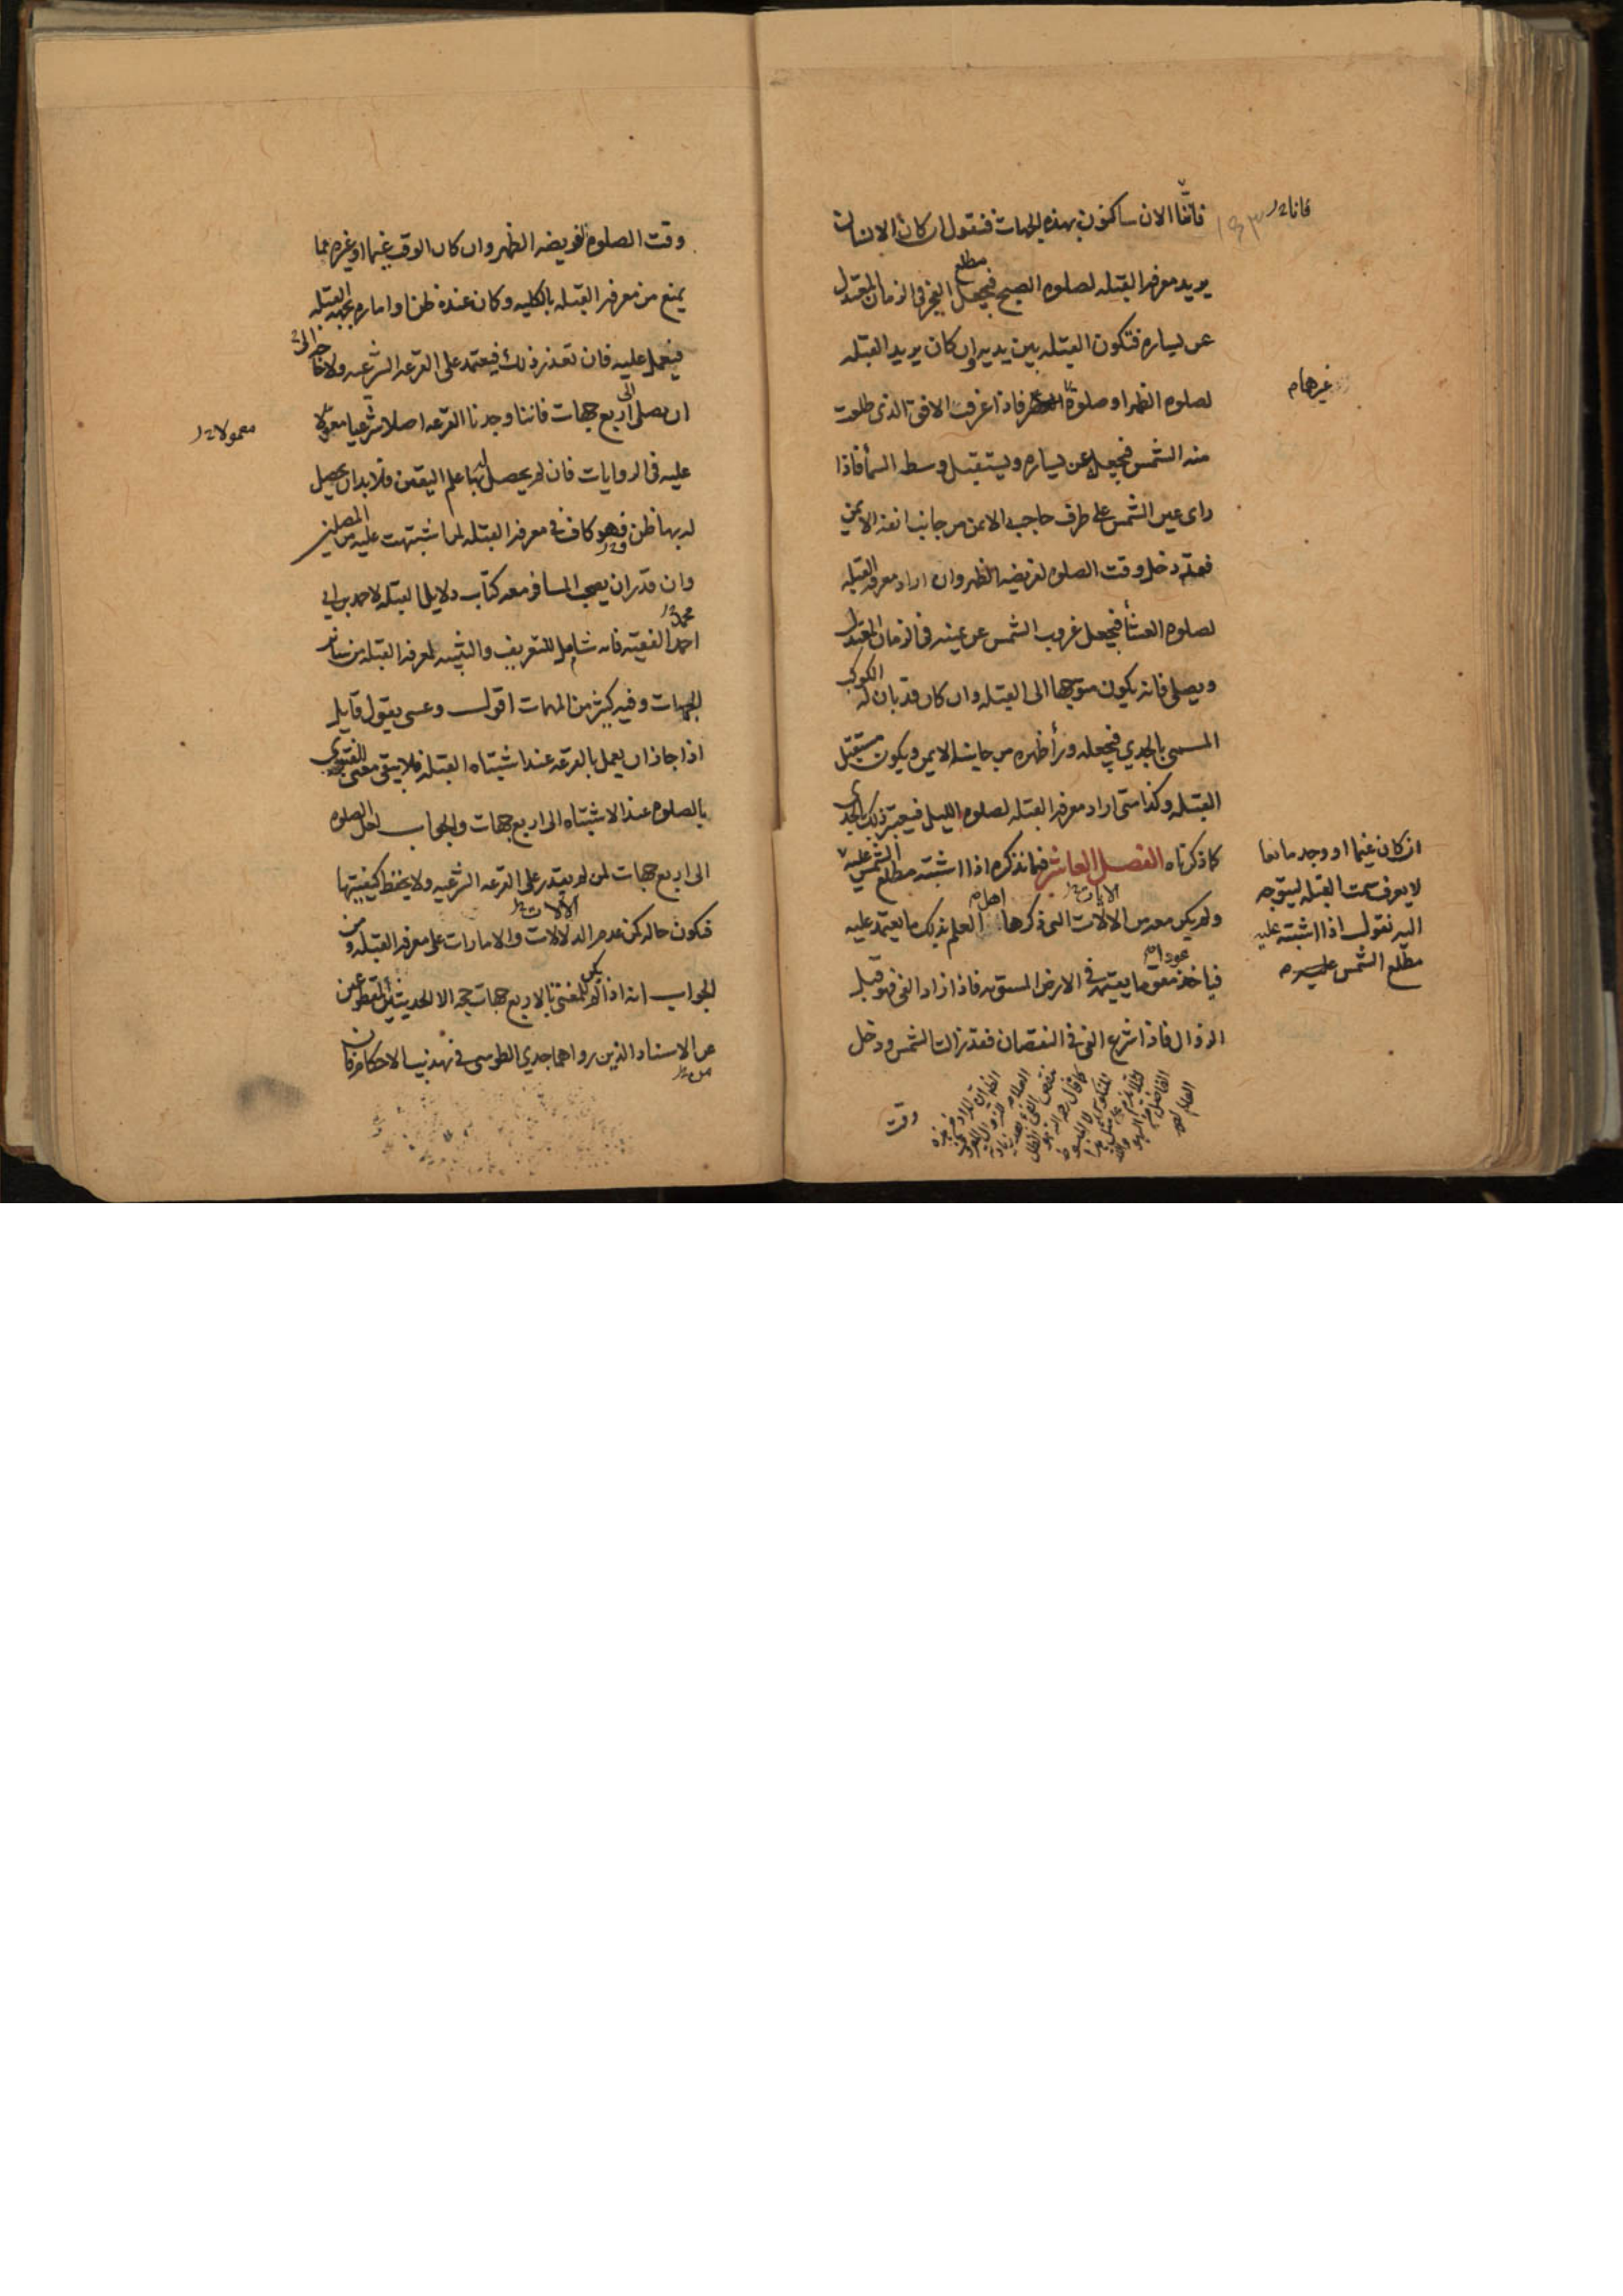 فاننا الان ساكنون بهذه الجهات فنقول ان كان الانسان
يريد معرفه القبله لصلوه الصبح فيجعل مطلع الفجر في الزمان المعتدل
عن يساره فتكون القبله بين يديه وان كان يريد القبله
لصلوه الظهر او صلوة العصر فاذا عرف الافق الذى طلعت
منه الشمس فيجعله عن يساره ويستقبل وسط السمأ فاذا
راى عين الشمس على طرف حاجبه الايمن من جانب انفه الايمن
فقد دخل وقت الصلوه لفريضه الظهر وان اراد معرفه القبله
لصلوه العشأ فيجعل غروب الشمس عن يمينه فى الزمان المعتدل
ويصلى فانه يكون متوجها الى القبله وان كان قد بان له الكوكب
المسمى بالجدي فيجعله ورأ ظهره من جانبه الايمن ويكون مستقبل
القبله وكذا متى اراد معرفه القبله لصلوه الليل فيعتبر ذلك بالجدى
كما ذكرناه الفصل العاشر فيما نذكره اذا اشتبه مطلع الشمس عليه
ولم يكن معه من الالات التى ذكرها اهل العلم بذلك ما يعتمد عليه
فياخذ عودا يقيمه في الارض المستويه فاذا زاد الفى فهو قبل
الزوال فاذا شرع الفى فى النقصان فقد زالت الشمس ودخل
وقت
فانا
غيرها
ان كان غيما او وجد مانعا
لا يعرف سمت القبله ليتوجه
اليه نقول اذا اشتبه عليه
مطلع الشمس عليه
وقت الصلوه لفريضه الظهر وان كان الوقت غيما او غيره مما
يمنع من معرفه القبله بالكليه وكان عنده ظن او اماره بجهه القبله
فيعمل عليه فان تعذر ذلك فيعتمد على القرعه الشرعيه ولا حاجه الى
ان يصلى الى اربع جهات فاننا وجدنا القرعه اصلا شرعيا معولا
عليه فى الروايات فان لم يحصل بها علم اليقين فلا بد ان يحصل
له بها ظن وهو كاف في معرفه القبله لمن اشتبهت عليه من المصلين
وان قدر ان يصحب المسافر معه كتاب دلايل القبله لاحمد بن ابى
احمد الفقيه فانه شامل للتعريف والتنبيه لمعرفه القبله من ساير
الجهات وفيه كثير من المهمات اقول وعسى يقول قايل
اذا جاز ان يعمل بالقرعه عند اشتباه القبله فلا يبقى معنى للفتوى
بالصلوه عند الاشتباه الى اربع جهات والجواب لعل الصلوه
الى اربع جهات لمن لم يقدر على القرعه الشرعيه ولا يحفظ كيفيتها
فتكون حاله كمن عدم الدلالات والامارات على معرفه القبله ومن
الجواب انه اذا لم يكن للمفتى بالاربع جهات حجه الا الحديثين المقطوعين
عن الاسناد الذين رواهما جدي الطوسى في تهذيب الاحكام فان
معمولا
محمد